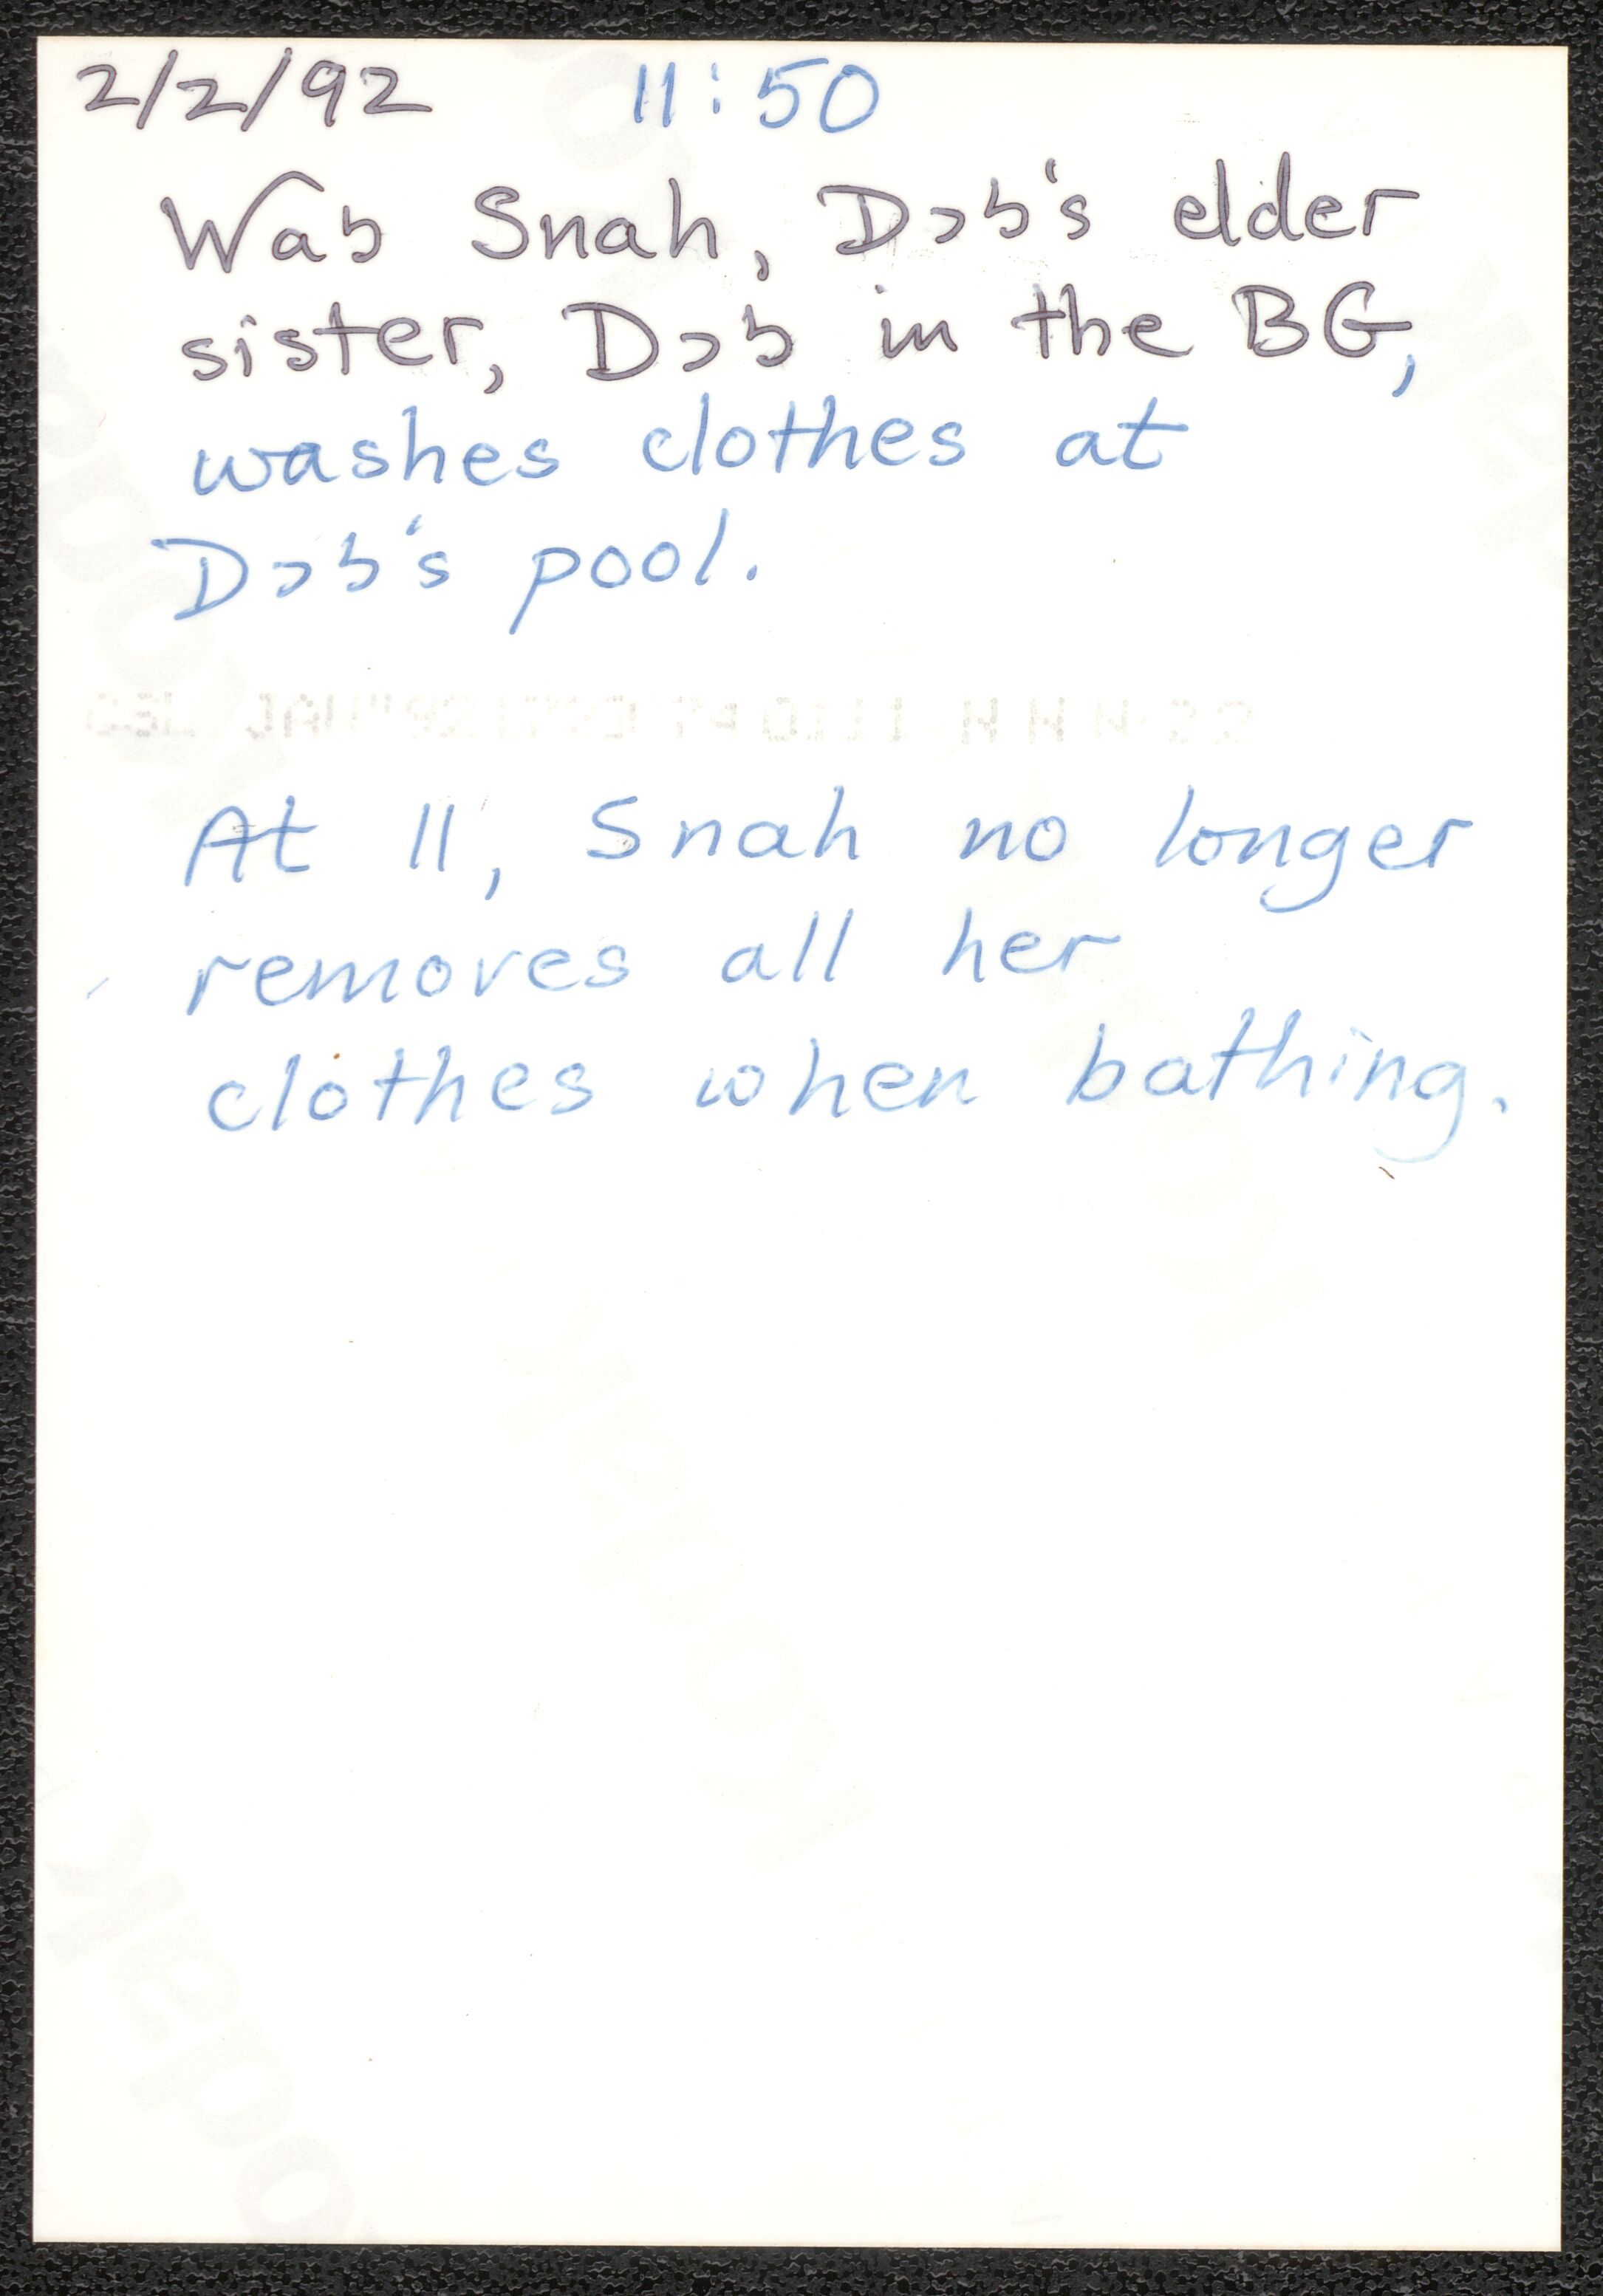 2/2/92 11:50
Wab Snah, Dɔb's elder
sister, Dɔb in the BG,
washes clothes at
Dɔb's pool.
At 11, Snah no longer
removes all her
clothes when bathing.